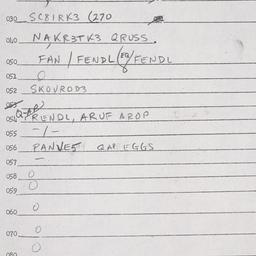 030 SC8IRK3 (270
040 NAKR3TK3 QRUSS.
050 FAN / FENDL (EQ) / FENDL
051 0
052 SKOVROD3
053
054 RENDL, ARUF AROP
055 - / -
056 PANVES QAR EGGS
057 -
058 0
059 0
060 0
070 0
080 0